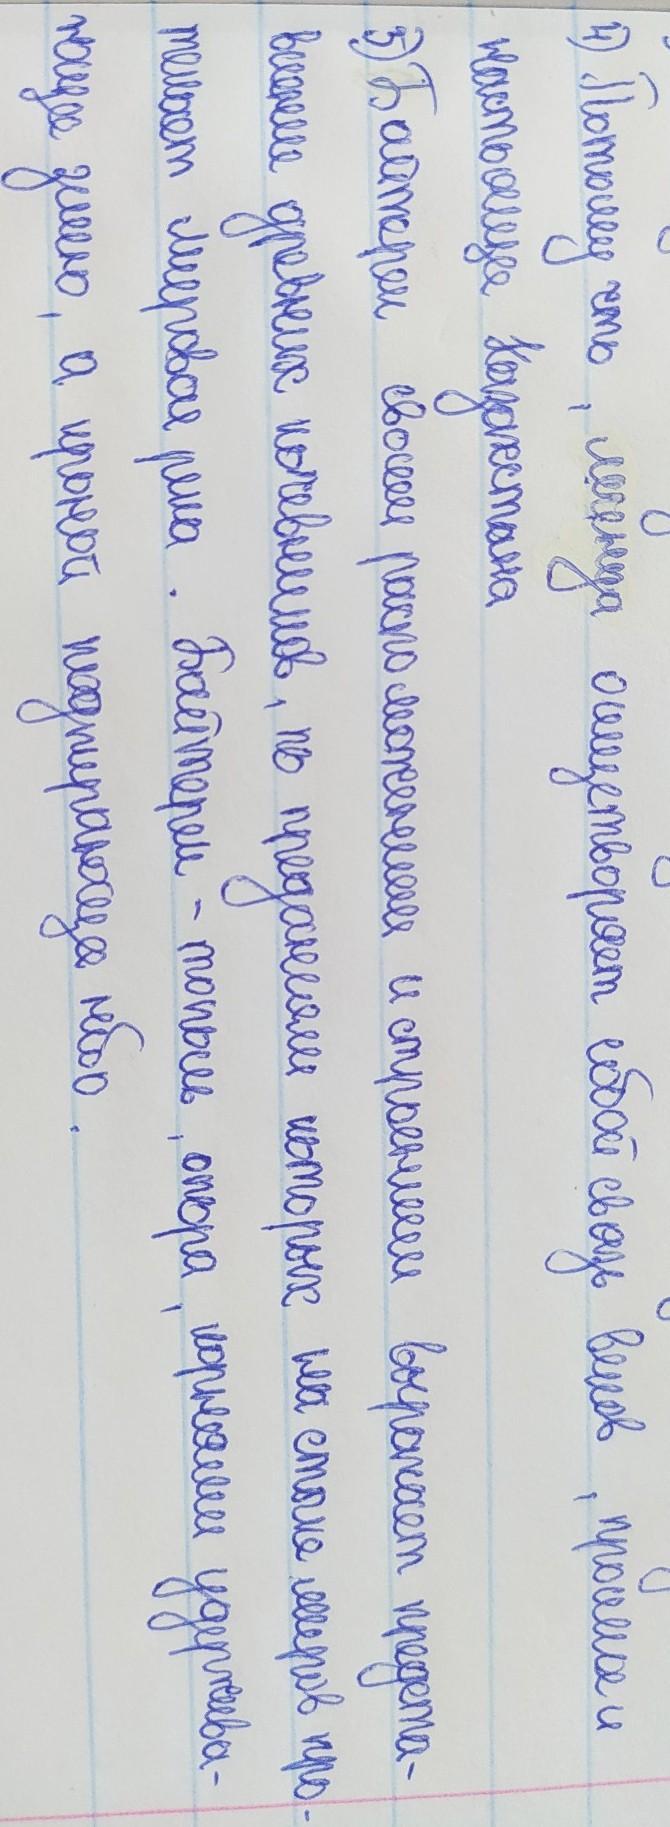 4) Потому что, легенда олицетворяет собой связь веков, прошлых и
настоящее Казахстана
5) Байтерек своим расположением и строением выражает предста-
вления древних кочевников, по преданиям которых на стыке миров про-
текает мировая река. Байтерек - тополь, опора, корнями удержива-
ющее землю, а кроной подпирающее небо.